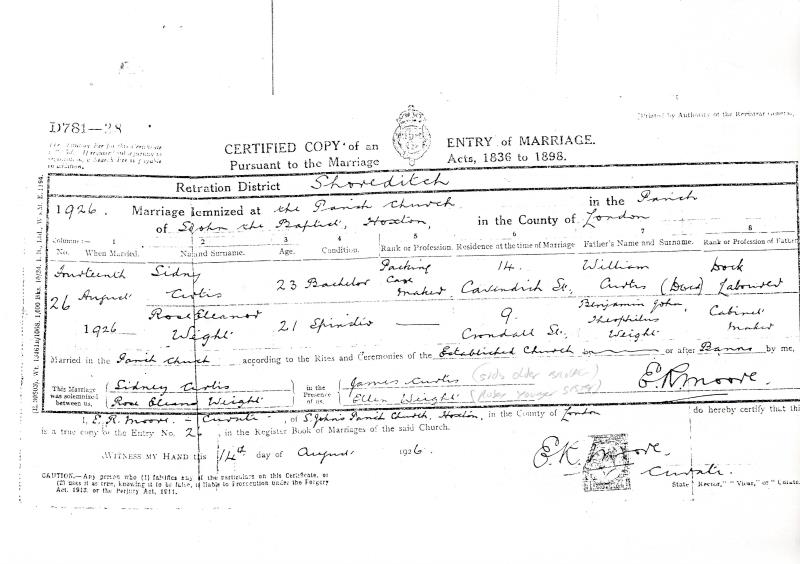 D781—28
Printed by Authority of the Registrar General.
CERTIFIED COPY of an ENTRY of MARRIAGE.
Pursuant to the Marriage Acts, 1836 to 1898.
Retration District Shoreditch
1926. Marriage lemnized at the Parish Church in the Parish
of St John the Baptist, Hoxton, in the County of London
Columns:— 1 2 3 4 5 6 7 8
No. When Married. Na and Surname. Age. Condition. Rank or Profession. Residence at the time of Marriage Father's Name and Surname. Rank or Profession of Father
26 Fourteenth August 1926 Sidney Curtis 23 Bachelor Packing Case Maker 14. Cavendish St. William Curtis (Decd) Dock Labourer
Rose Eleanor Weight 21 Spinster — 9. Crondall St. Benjamin John Theophilus Weight Cabinet Maker
Married in the Parish Church according to the Rites and Ceremonies of the Established Church by or after Banns by me,
This Marriage was solemnized between us, Sidney Curtis in the Presence of us, James Curtis E R Moore.
Rose Eleanor Weight Ellen Weight
I, E. R. Moore - Curate, of St. John's Parish Church, Hoxton, in the County of London do hereby certify that this
is a true copy of the Entry No. 2 , in the Register Book of Marriages of the said Church.
WITNESS MY HAND this 14th day of August 1926.
E. R. Moore
Curate.
CAUTION.—Any person who (1) falsifies any of the particulars on this Certificate, or
(2) uses it as true, knowing it to be false, is liable to Prosecution under the Forgery
Act, 1913, or the Perjury Act, 1911.
State "Rector," "Vicar," or "Curate.